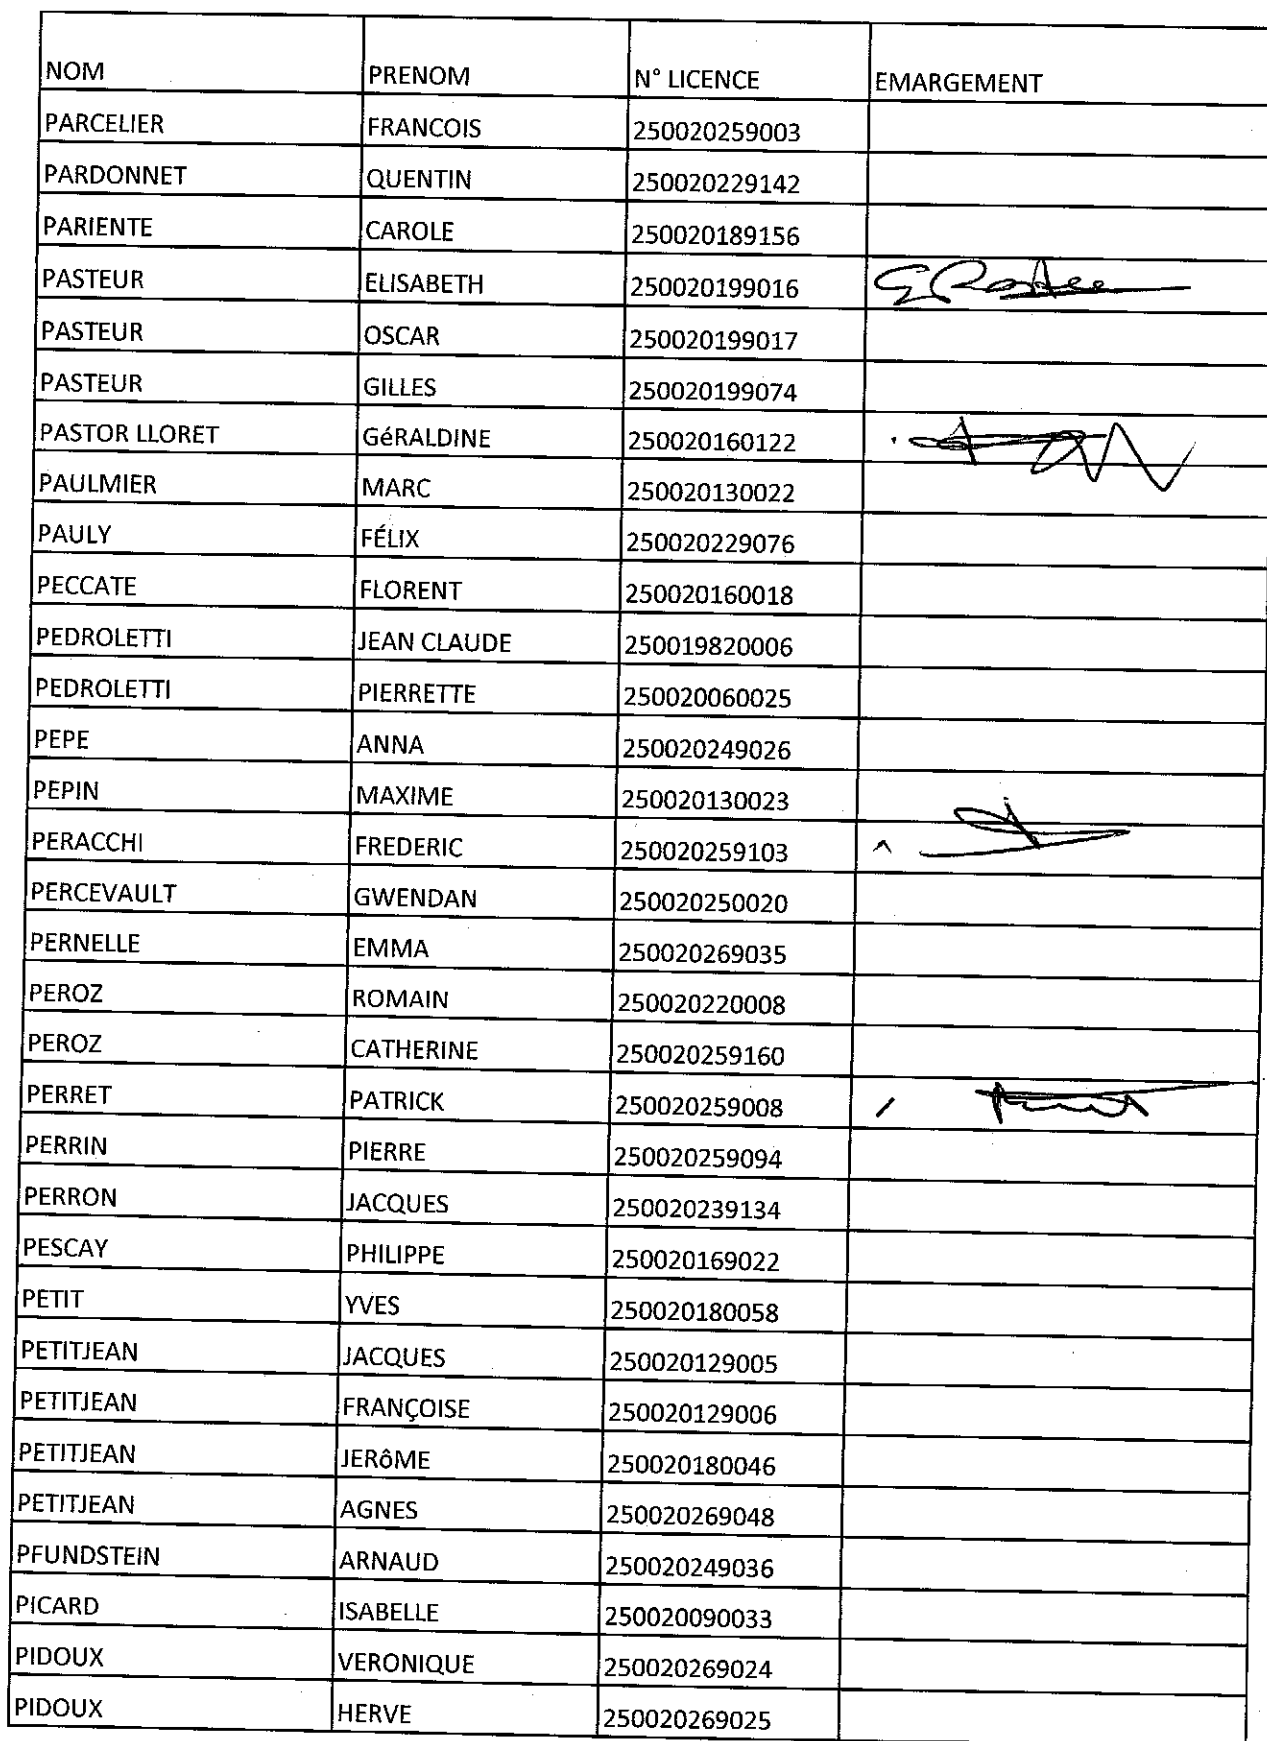 NOM PRENOM N° LICENCE EMARGEMENT
PARCELIER FRANCOIS 250020259003
PARDONNET QUENTIN 250020229142
PARIENTE CAROLE 250020189156
PASTEUR ELISABETH 250020199016
PASTEUR OSCAR 250020199017
PASTEUR GILLES 250020199074
PASTOR LLORET GéRALDINE 250020160122
PAULMIER MARC 250020130022
PAULY FÉLIX 250020229076
PECCATE FLORENT 250020160018
PEDROLETTI JEAN CLAUDE 250019820006
PEDROLETTI PIERRETTE 250020060025
PEPE ANNA 250020249026
PEPIN MAXIME 250020130023
PERACCHI FREDERIC 250020259103
PERCEVAULT GWENDAN 250020250020
PERNELLE EMMA 250020269035
PEROZ ROMAIN 250020220008
PEROZ CATHERINE 250020259160
PERRET PATRICK 250020259008
PERRIN PIERRE 250020259094
PERRON JACQUES 250020239134
PESCAY PHILIPPE 250020169022
PETIT YVES 250020180058
PETITJEAN JACQUES 250020129005
PETITJEAN FRANÇOISE 250020129006
PETITJEAN JERôME 250020180046
PETITJEAN AGNES 250020269048
PFUNDSTEIN ARNAUD 250020249036
PICARD ISABELLE 250020090033
PIDOUX VERONIQUE 250020269024
PIDOUX HERVE 250020269025